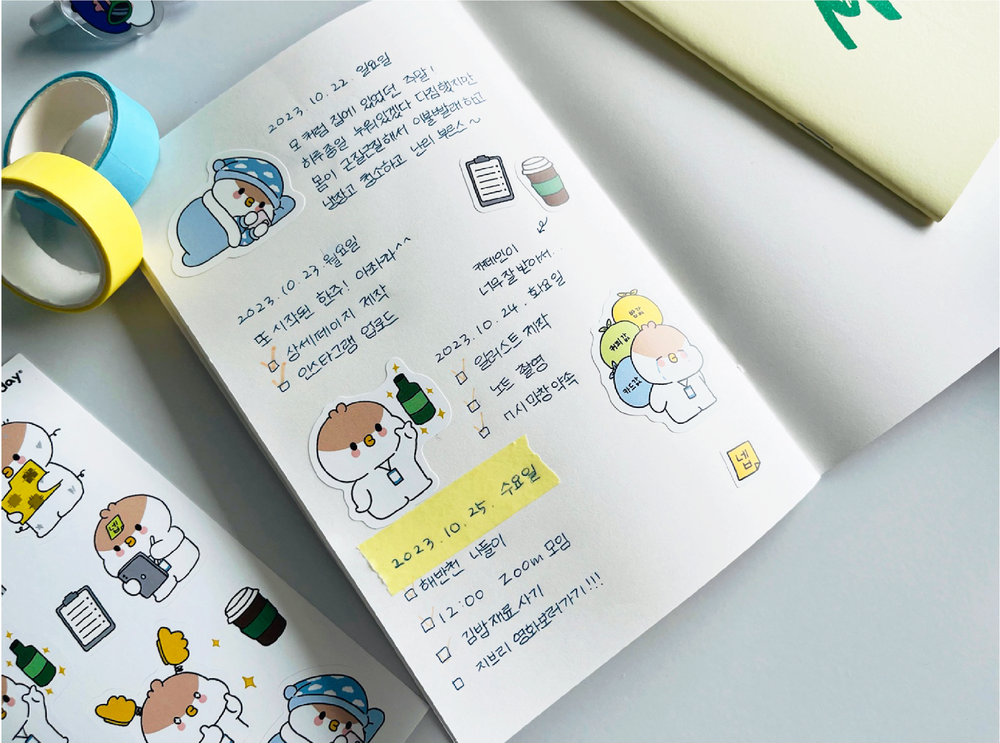 2023. 10. 22. 일요일
모처럼 집에 있었던 주말!
하루종일 누워있겠다 다짐했지만
몸이 근질근질해서 이불빨래하고
냉장고 청소하고 난리 부르스~
2023. 10. 23. 월요일
또 시작된 한주! 아좌좌^^
상세페이지 제작
인스타그램 업로드
카페인이
너무 잘 받아서..
2023. 10. 24. 화요일
일러스트 제작
노트 촬영
7시 막창 약속
밥값
커피값
카드값
넵
2023. 10. 25. 수요일
해반천 나들이
12:00 Zoom 모임
김밥재료 사기
지브리 영화보러가기!!!
넵